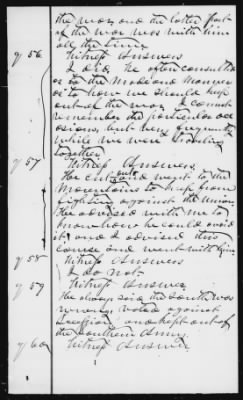 the war, and the latter part
of the war was with him
all the time.
q 56 Witness Answers
I did. He often consulted
as to the mode and manner
as to how we should keep
out of the war. I cannot
remember the particular oc
casions, but very frequently
while we were
together.
q 57 Witness Answers.
He cut out and went to the
Mountains to keep from
fighting against the Union.
He advised with me to
know how he could avoid
it and I advised this
course and went with him
q 58 Witness Answers
I do not.
q 59 Witness Answer
He always said the South was
wrong, voted against
Secession and kept out of
the Southern Army.
q 60 Witness Answer